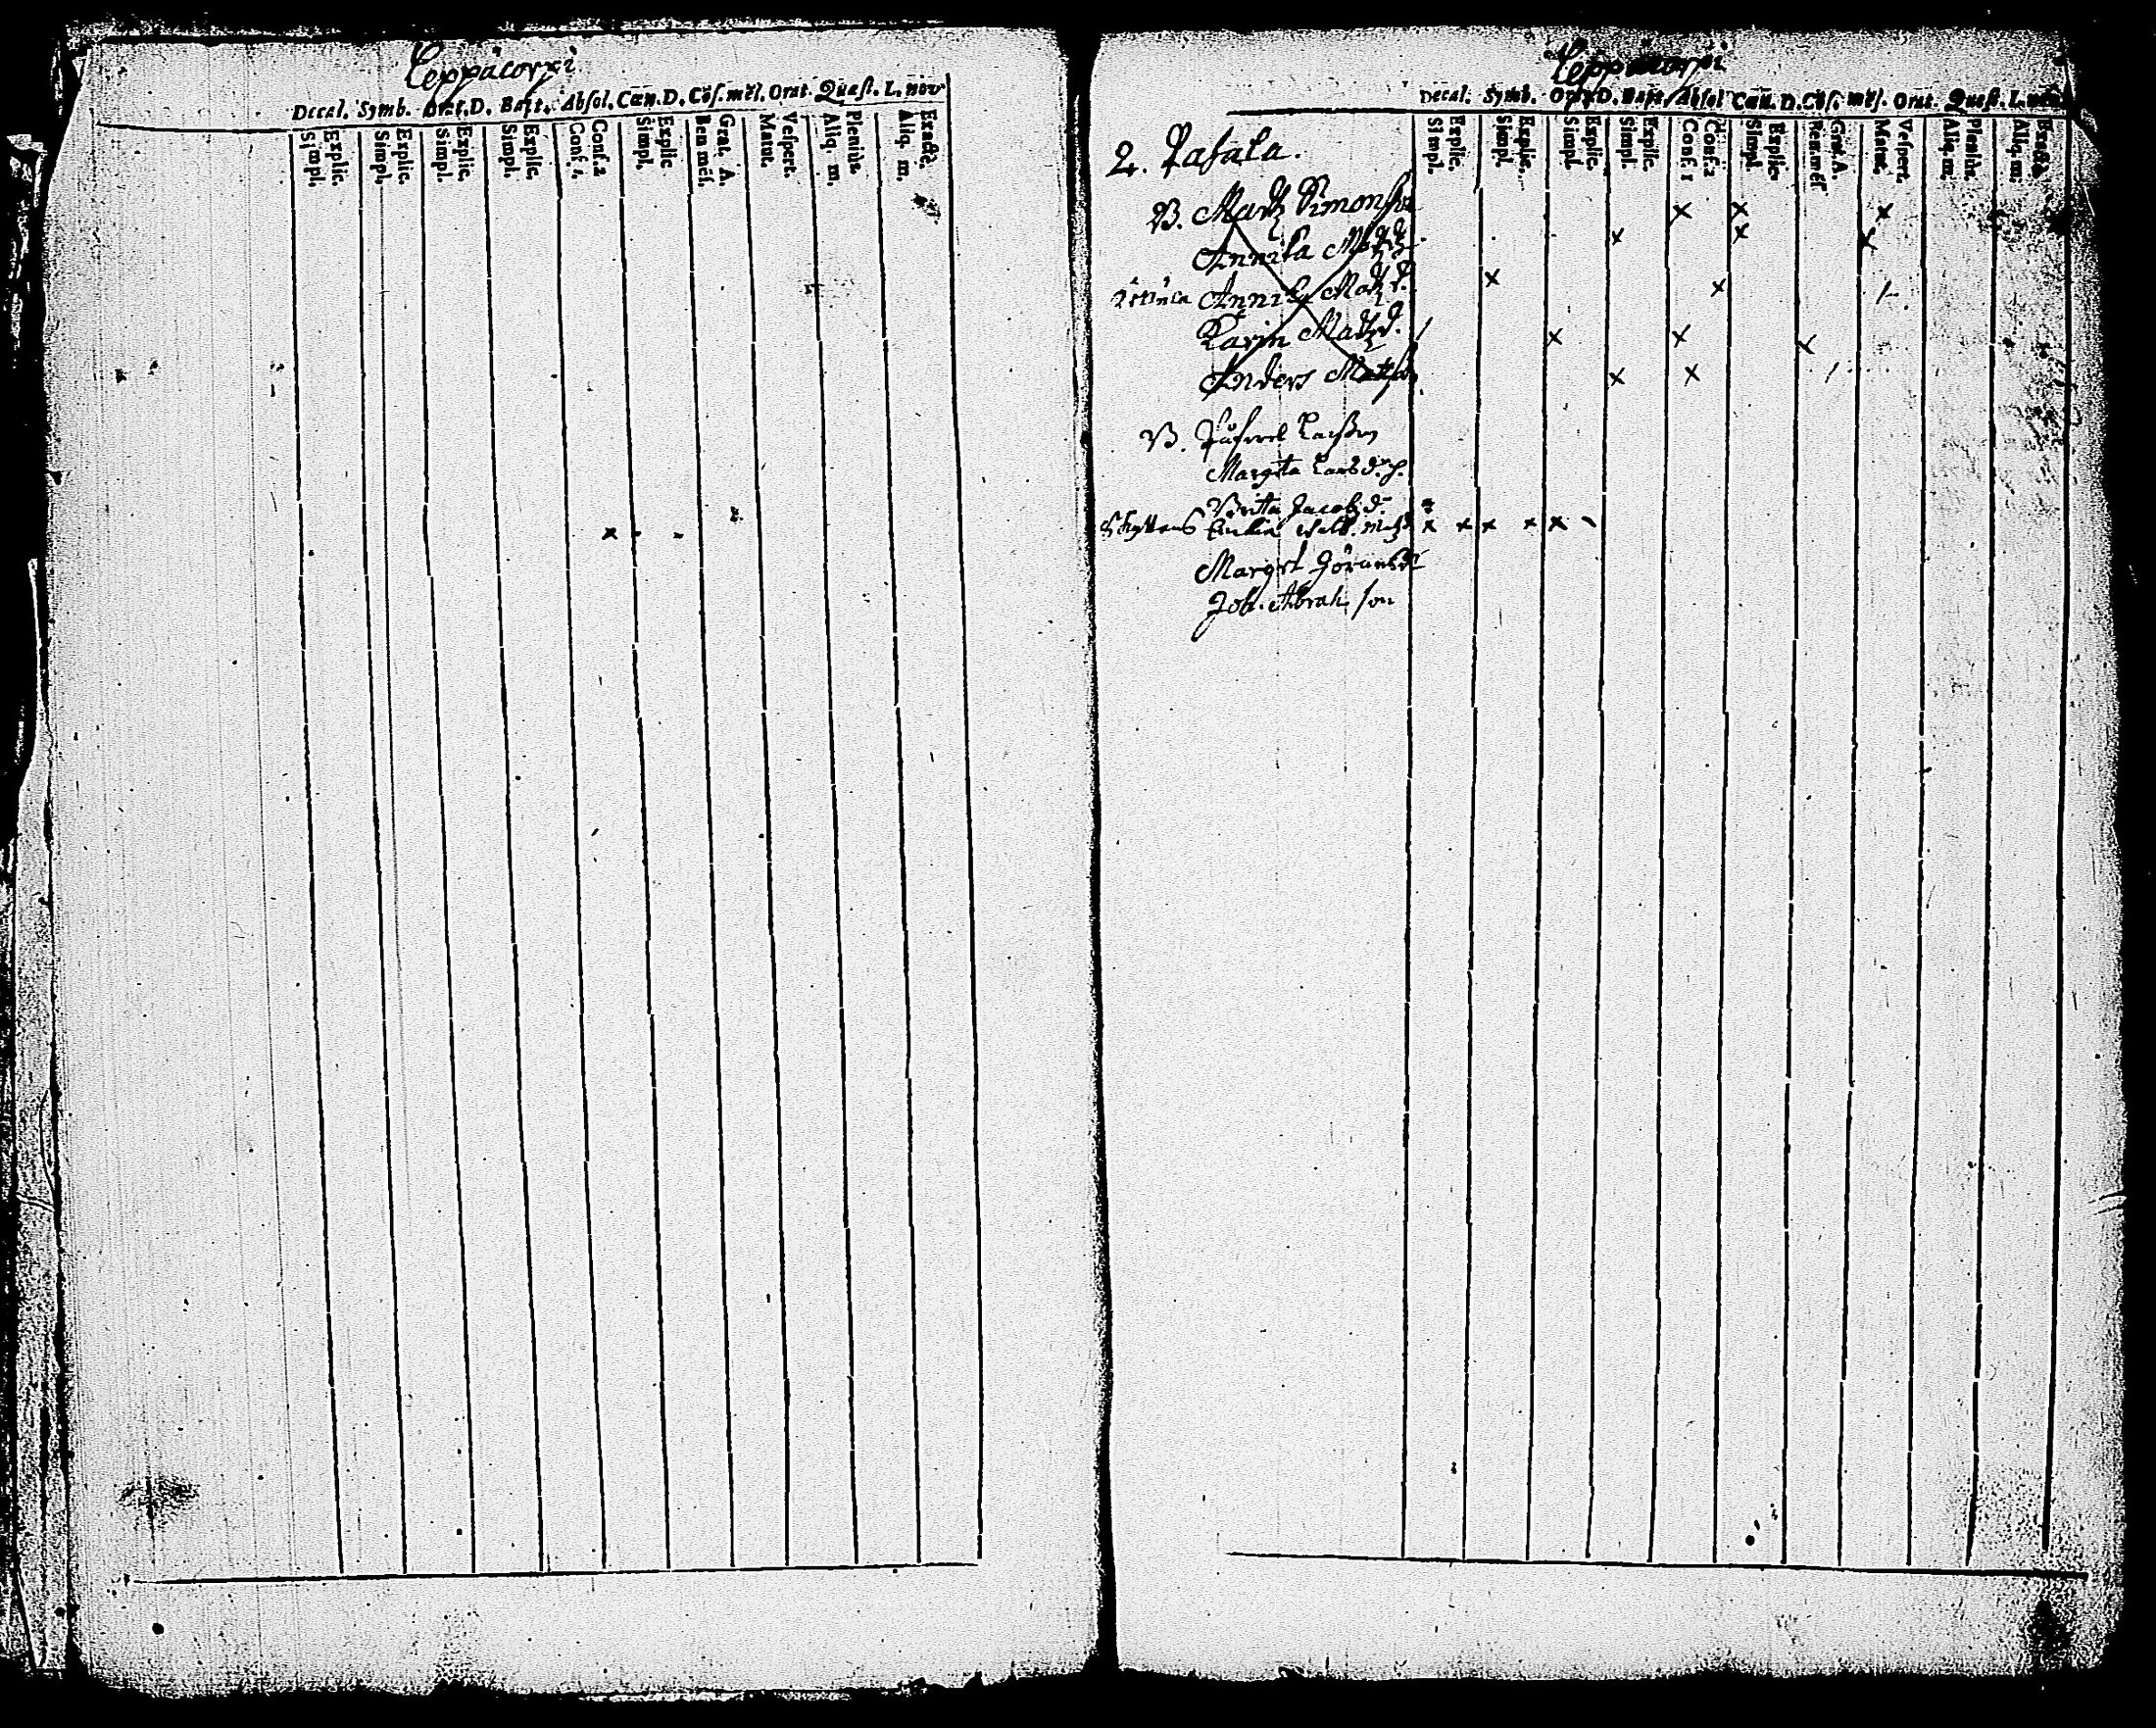 Leppäcorpi
Decal. Symb. Orat. D. Bapt. Absol. Cœn. D. Cōf. mēs. Orat. Quæst. L. nov
Simpl. Explic. Simpl. Explic. Simpl. Explic. Simpl. Explic. Conf. 1. Conf. 2 Simpl. Explic Ben mēs. Grat. A. Matut. Vespert. Aliq. m. Pleniùs. Aliq. m. Exactè.
Leppäcorpi
Decal. Symb. Orat. D. Bapt. Absol Cœn. D. Cōf. mēs. Orat. Quæst. L. nov
Simpl. Explic. Simpl. Explic. Simpl. Explic. Simpl. Explic. Conf. 1 Conf. 2 Simpl. Explic. Ben. mēs Grat. A. Matut. Vespert. Aliq. m. Pleniùs. Aliq. m. Exactè.
2. Laſala.
B. Simonſon
Annika
Annik Matzd.
Karin Matzd.
Anders Matſon
B. Larſson
Margeta Larsd. h.
Britta Jacobzd.
Margrt Göransd
Joh. Abrah. son